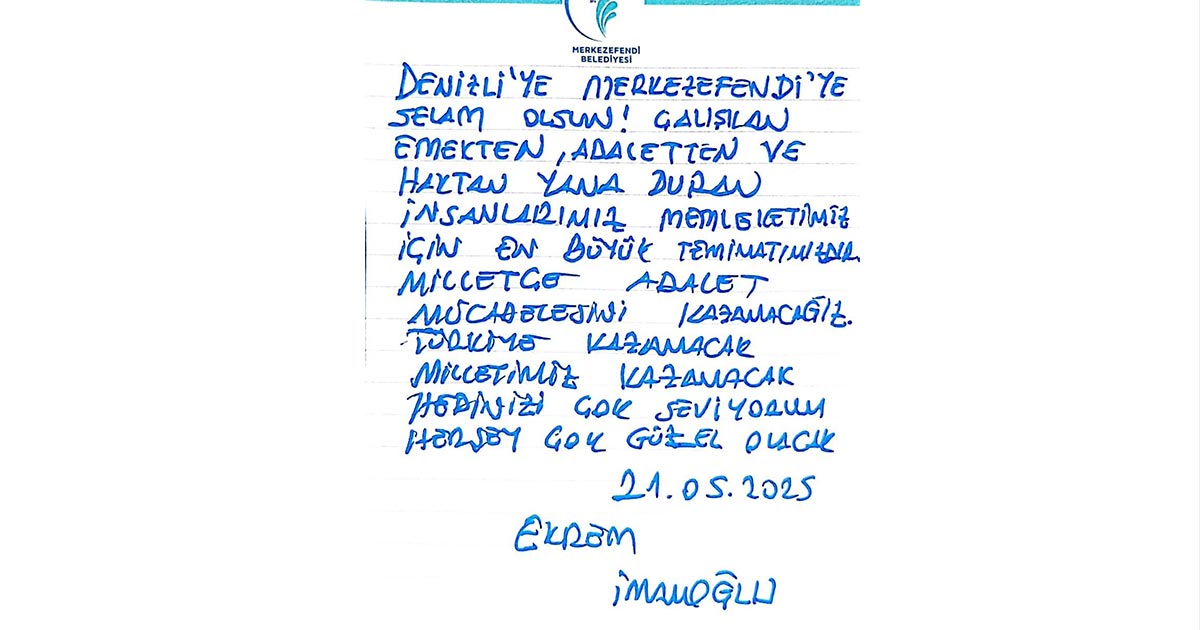 MERKEZEFENDİ
BELEDİYESİ
DENİZLİ'YE MERKEZEFENDİ'YE
SELAM OLSUN! ÇALIŞILAN
EMEKTEN, ADALETTEN VE
HAKTAN YANA DURAN
İNSANLARIMIZ MEMLEKETİMİZ
İÇİN EN BÜYÜK TEMİNATIMIZDIR.
MİLLETÇE ADALET
MÜCADELESİNİ KAZANACAĞIZ.
TÜRKİYE KAZANACAK
MİLLETİMİZ KAZANACAK
HEPİNİZİ ÇOK SEVİYORUM
HERŞEY ÇOK GÜZEL OLACAK
21.05.2025
EKREM
İMAMOĞLU